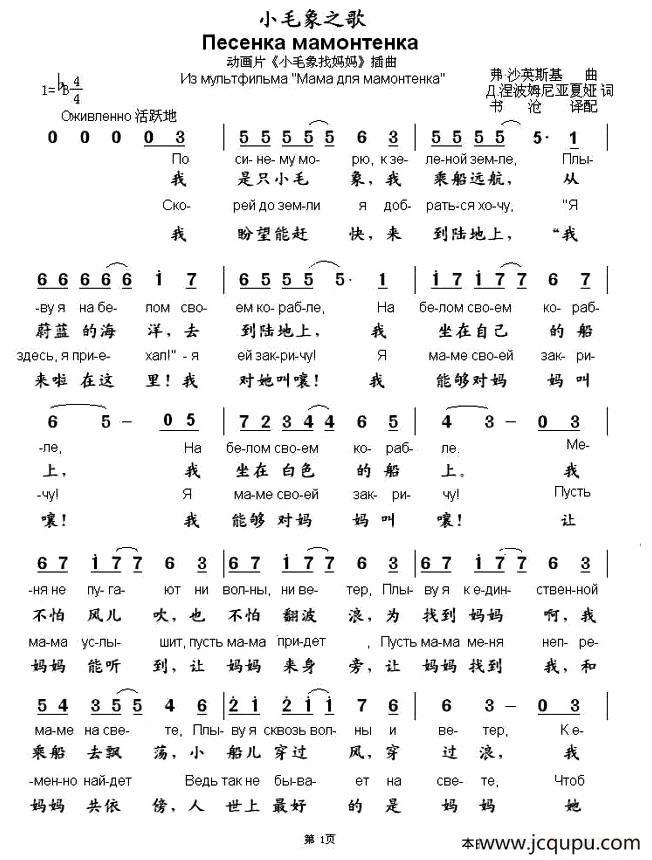 小毛象之歌
Песенка мамонтенка
动画片《小毛象找妈妈》插曲
Из мультфильма "Мама для мамонтенка"
弗·沙英斯基 曲
Д.涅波姆尼亚夏娅 词
书沧 译配
1=♭B 4/4
Оживленно 活跃地
0 0 0 0 3 | 5 5 5 5 6 3 | 5 5 5 5 5· 1
По си- не- му мо- рю, к зе- ле-ной зем-ле, Плы-
我 是只小毛 象，我 乘船远航， 从
Ско- рей до зем-ли я доб- рать-ся хо-чу, "Я
我 盼望能赶 快，来 到陆地上， “我
6 6 6 6 6 i 7 | 6 5 5 5 5· 1 | i 7 i 7 7 6 7
-ву я на бе- лом сво- ем ко-раб-ле, На бе-лом своем ко- раб-
蔚蓝 的海 洋，去 到陆地上， 我 坐在自己 的 船
здесь, я при-е- хал!" - я ей зак-ри-чу! Я ма-ме сво-ей зак- ри-
来啦 在这 里！我 对她叫嚷！ 我 能够对妈 妈叫
6 5 – 0 5 | 7 2 3 4 4 6 5 | 4 3 – 0 3
-ле, На бе-лом сво-ем ко- раб- ле. Ме-
上， 我 坐在 白色 的 船 上。 我
-чу! Я ма-ме сво-ей зак- ри- чу! Пусть
嚷！ 我 能够 对妈 妈 叫 嚷！ 让
6 7 i 7 7 6 3 | 6 7 i 7 7 6 3 | 6 7 i 7 7 6 3
-ня не пу-га- ют ни вол-ны, ни ве- тер, Плы- ву я к е-дин- ствен-ной
不怕 风儿 吹，也 不怕 翻波 浪，为 找到 妈妈 啊，我
ма-ма ус-лы- шит, пусть ма-ма при-дет , Пусть ма-ма ме-ня неп- ре-
妈妈 能听 到，让 妈妈 来身 旁，让 妈妈 找到 我，和
5 4 3 5 5 4 6 | 2 i 2 i i 7 6 | 6 3 – 0 3
ма-ме на све- те, Плы- ву я сквозь вол- ны и ве- тер, К е-
乘船 去飘 荡，小 船儿 穿过 风，穿 过 浪， 我
-мен-но най-дет Ведь так не бы-ва- ет на све- те, Чтоб
妈妈 共依 傍，人 世上 最好 的 是 妈妈 她
第 1页
www.jcqupu.com